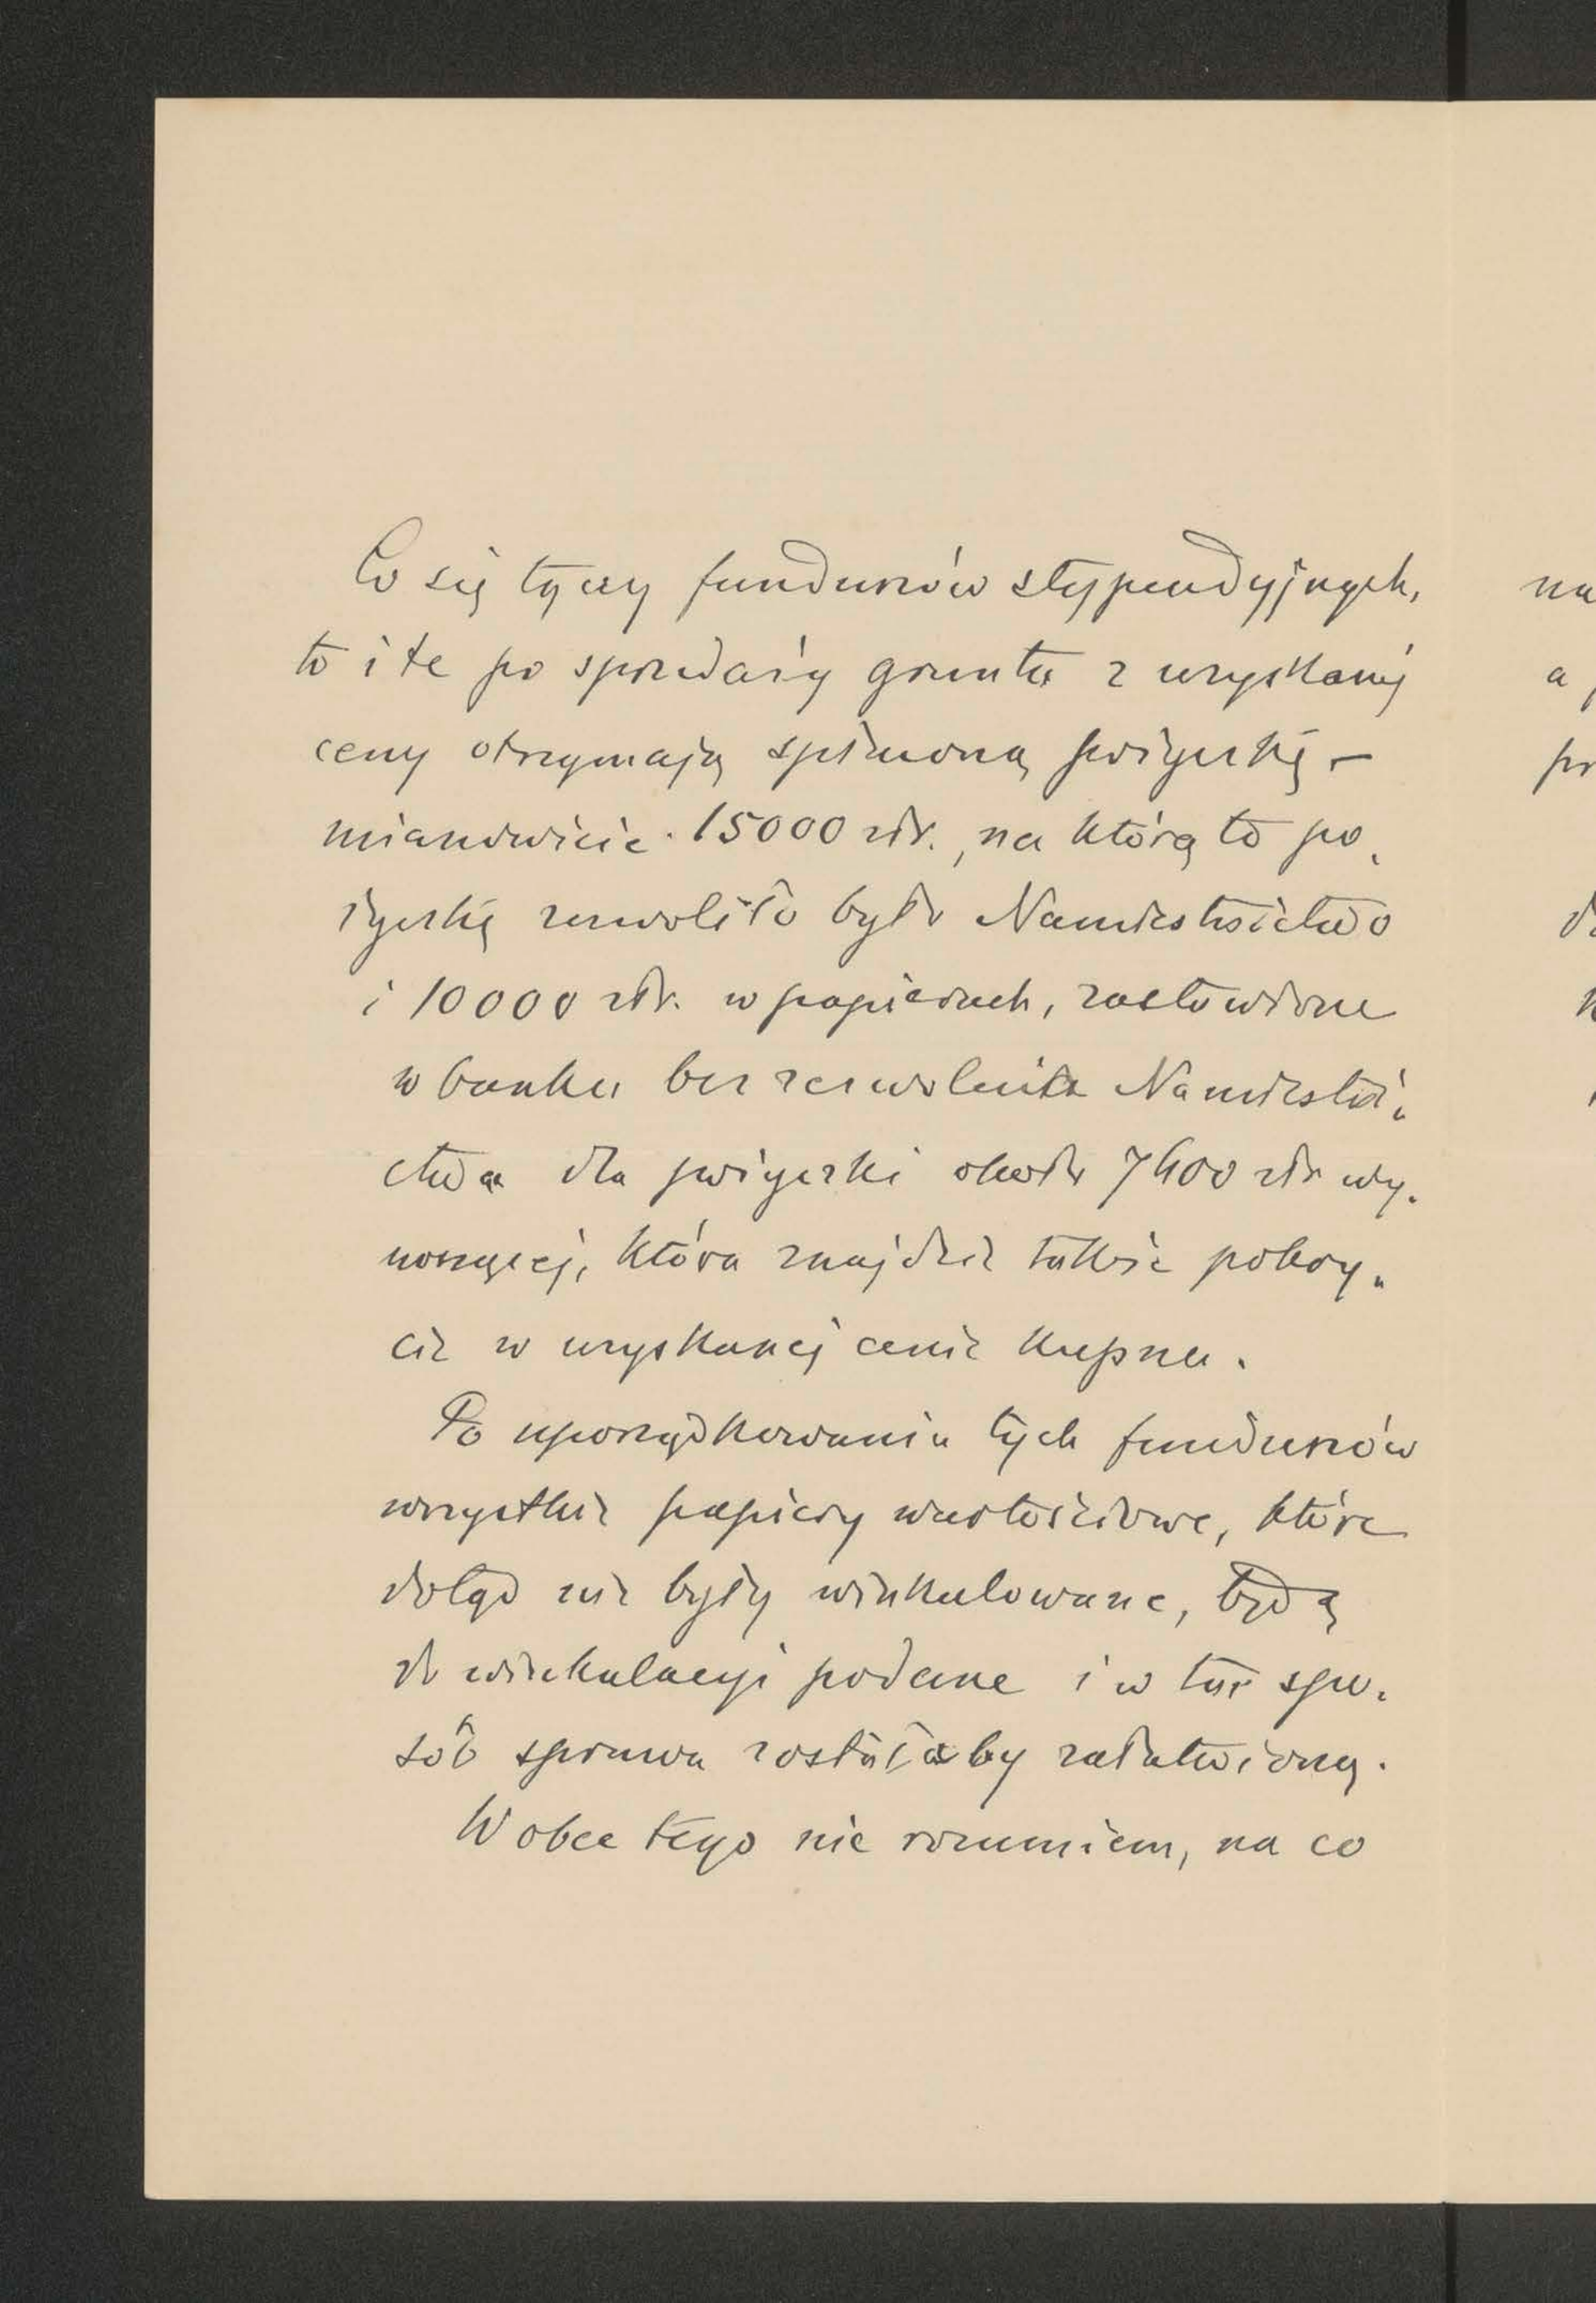 Co się tyczy funduszów stypendyjnych,
to i te po sprzedaży gruntu z uzyskanej
ceny otrzymają spłaconą pożyczkę –
mianowicie 15000 złr., na którą to po„
życzkę zezwoliło było Namiestnictwo
i 10000 złr. w papierach, zastawione
w banku bez zezwolenia Namiestni„
ctwa dla pożyczki około 7400 złr wy„
noszącej, która znajdzie także pokry„
cie w uzyskanej cenie kupna.
Po uporządkowaniu tych funduszów
wszystkie papiery wartościowe, które
dotąd nie były winkulowane, będą
do winkulacyi podane i w ten spo„
sób sprawa zostałaby załatwioną.
Wobec tego nie rozumiem, na co
na
a